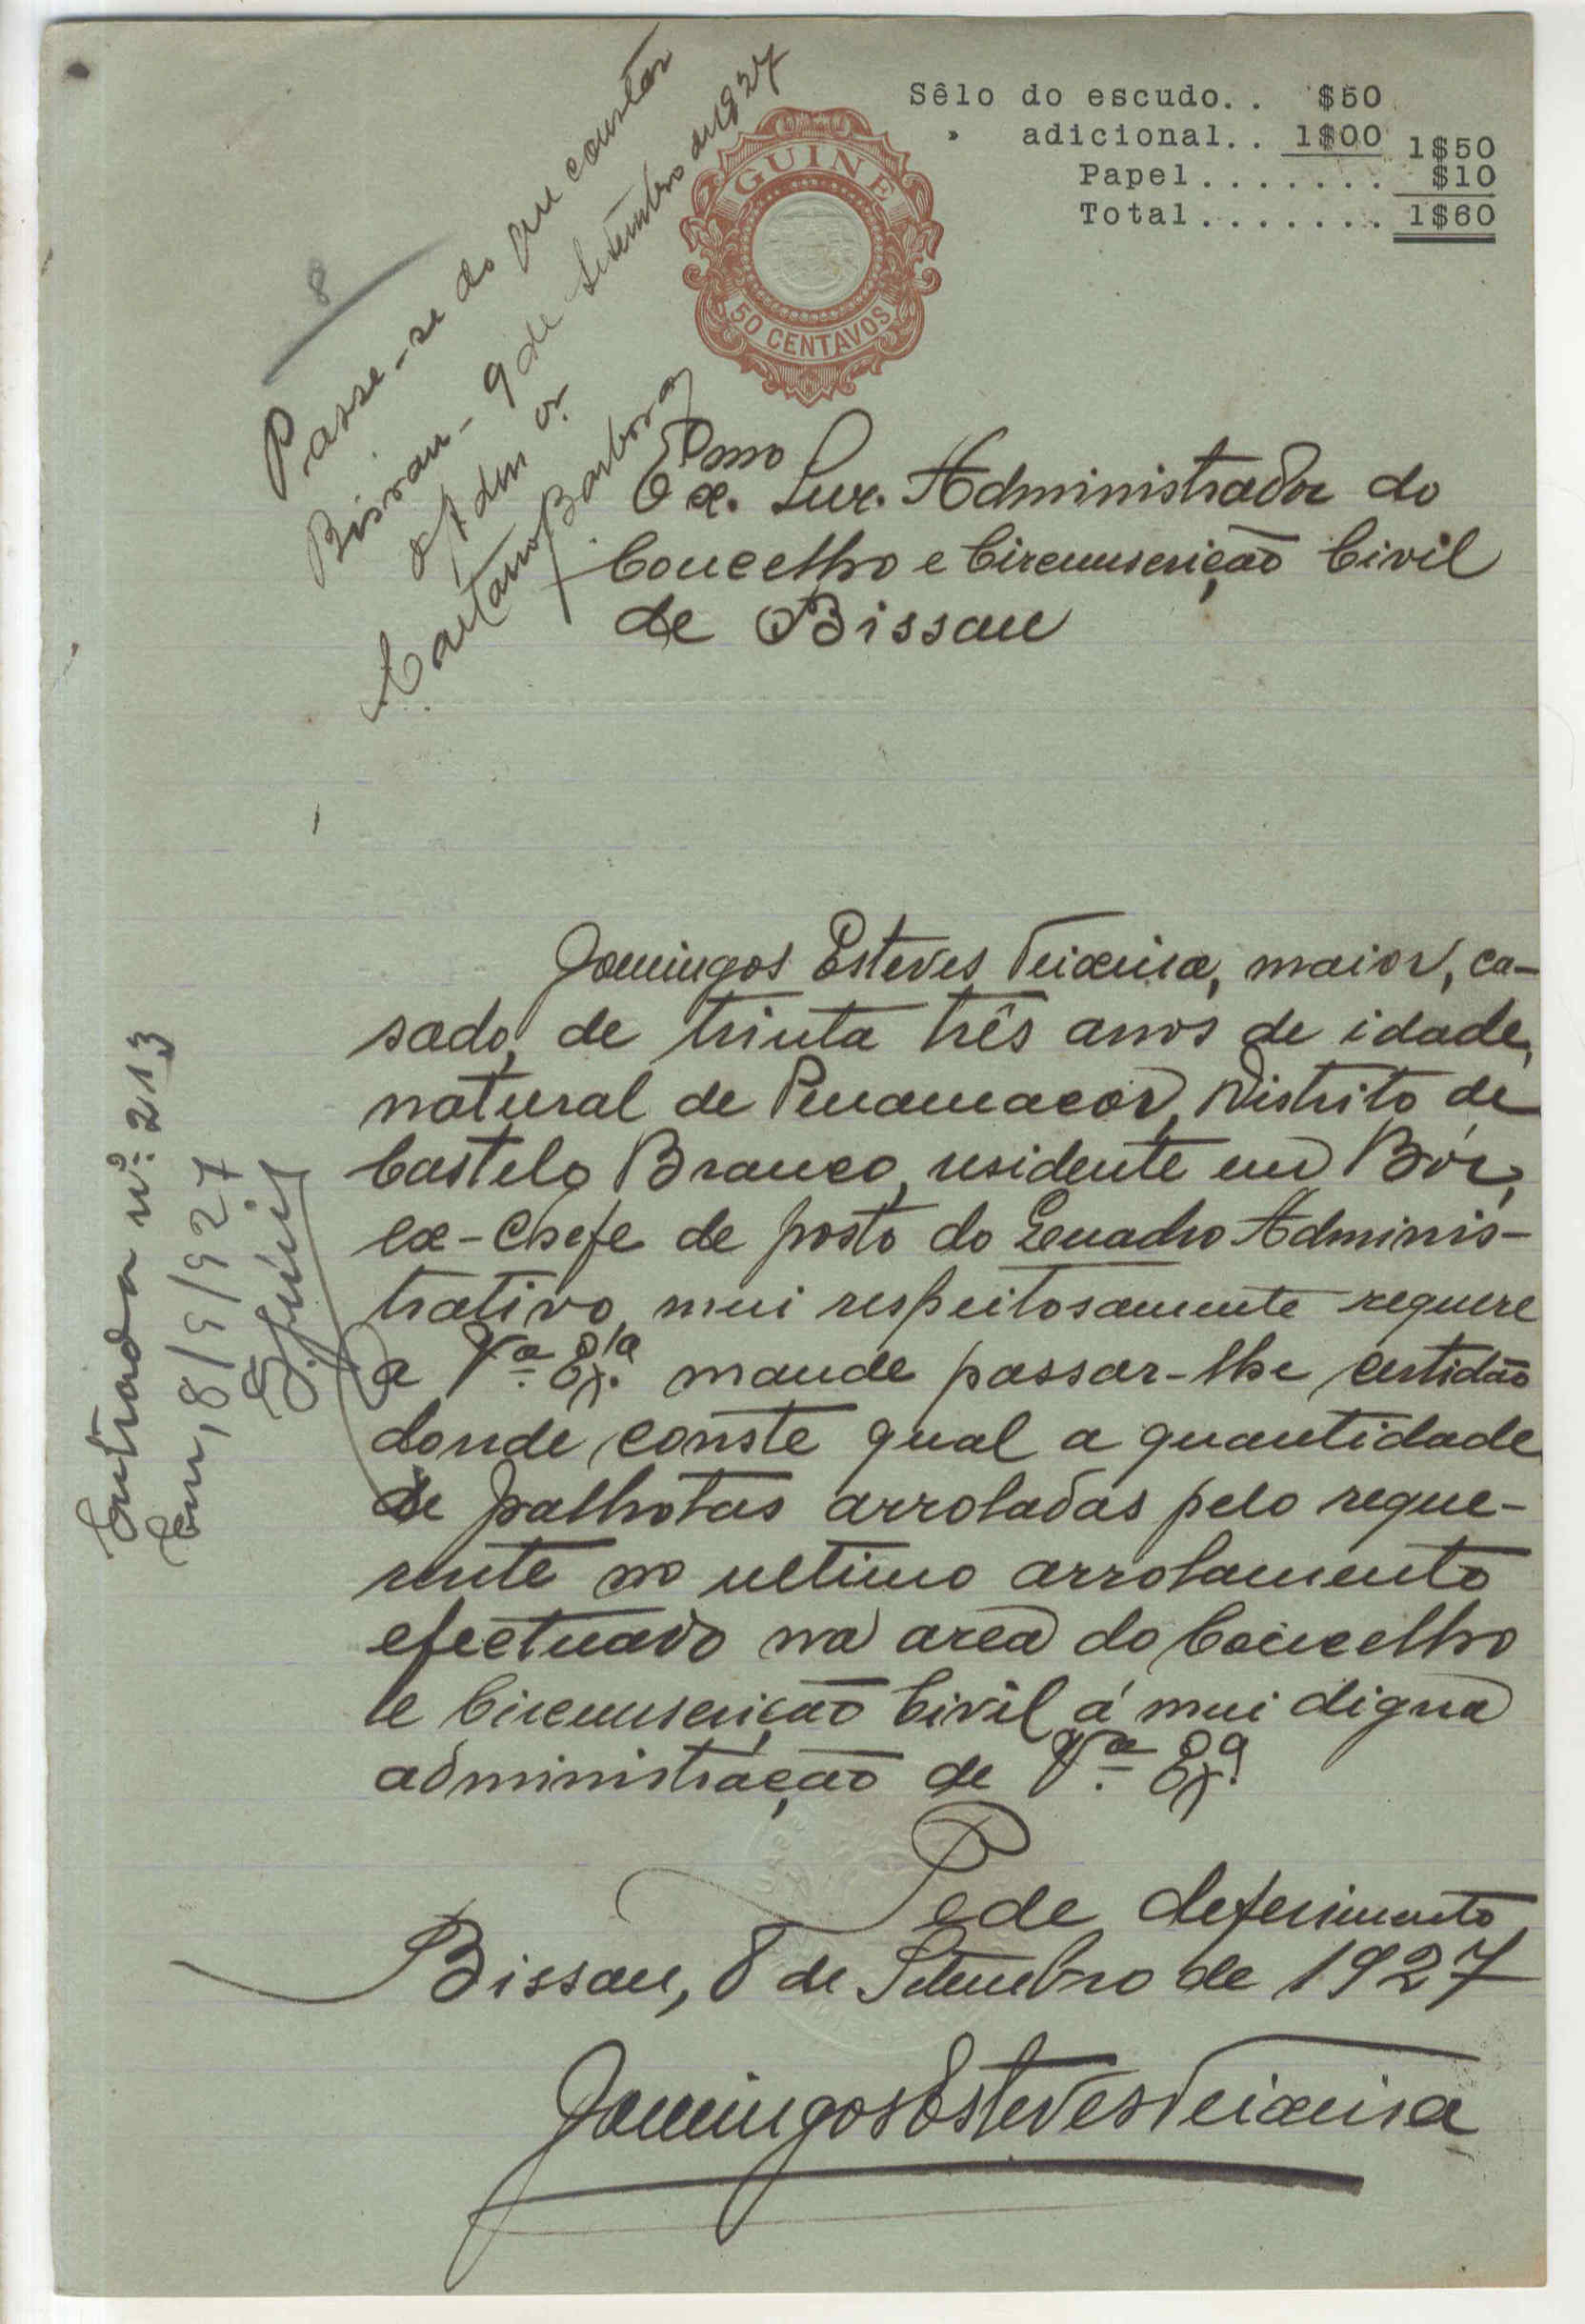 Sêlo do escudo.. $50
» adicional.. 1$00 1$50
Papel....... $10
Total....... 1$60
GUINÉ
50 CENTAVOS
8
Passe-se do que constar
Bissau - 9 de Setembro de 1927
O Adm or
Caetano Barbosa
Exmo. Snr. Administrador do
Concelho e Circunscrição Civil
de Bissau
Domingos Esteves Teixeira, maior, ca-
sado, de trinta três anos de idade,
natural de Penamacôr, Distrito de
Castelo Branco, residente em Bór,
ex-chefe de posto do Quadro Adminis-
trativo, mui respeitosamente requere
a Vª. Exª. mande passar-lhe certidão
donde conste qual a quantidade
de palhotas arroladas pelo reque-
rente no ultimo arrolamento
efectuado na area do Concelho
e Circunscrição Civil á mui digna
administração de Vª. Exª.
Pede deferimento
Bissau, 8 de Setembro de 1927
Domingos Esteves Teixeira
Entrada nº. 213
Em, 8/9/927